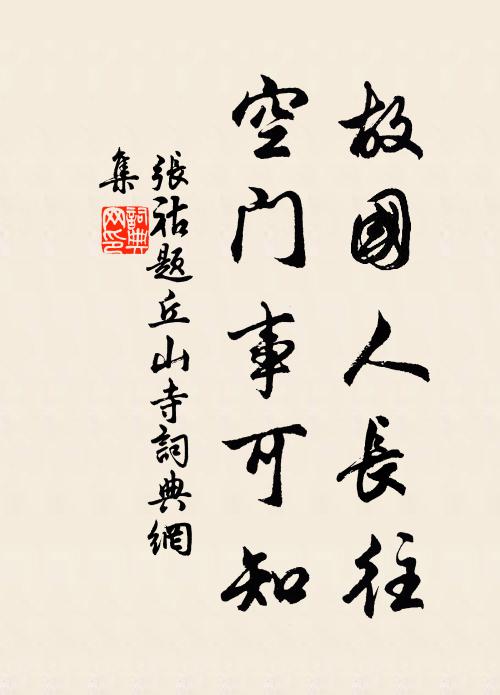 故國人長往
空門事可知
張祜題丘山寺詞典網
集
詞典
网印